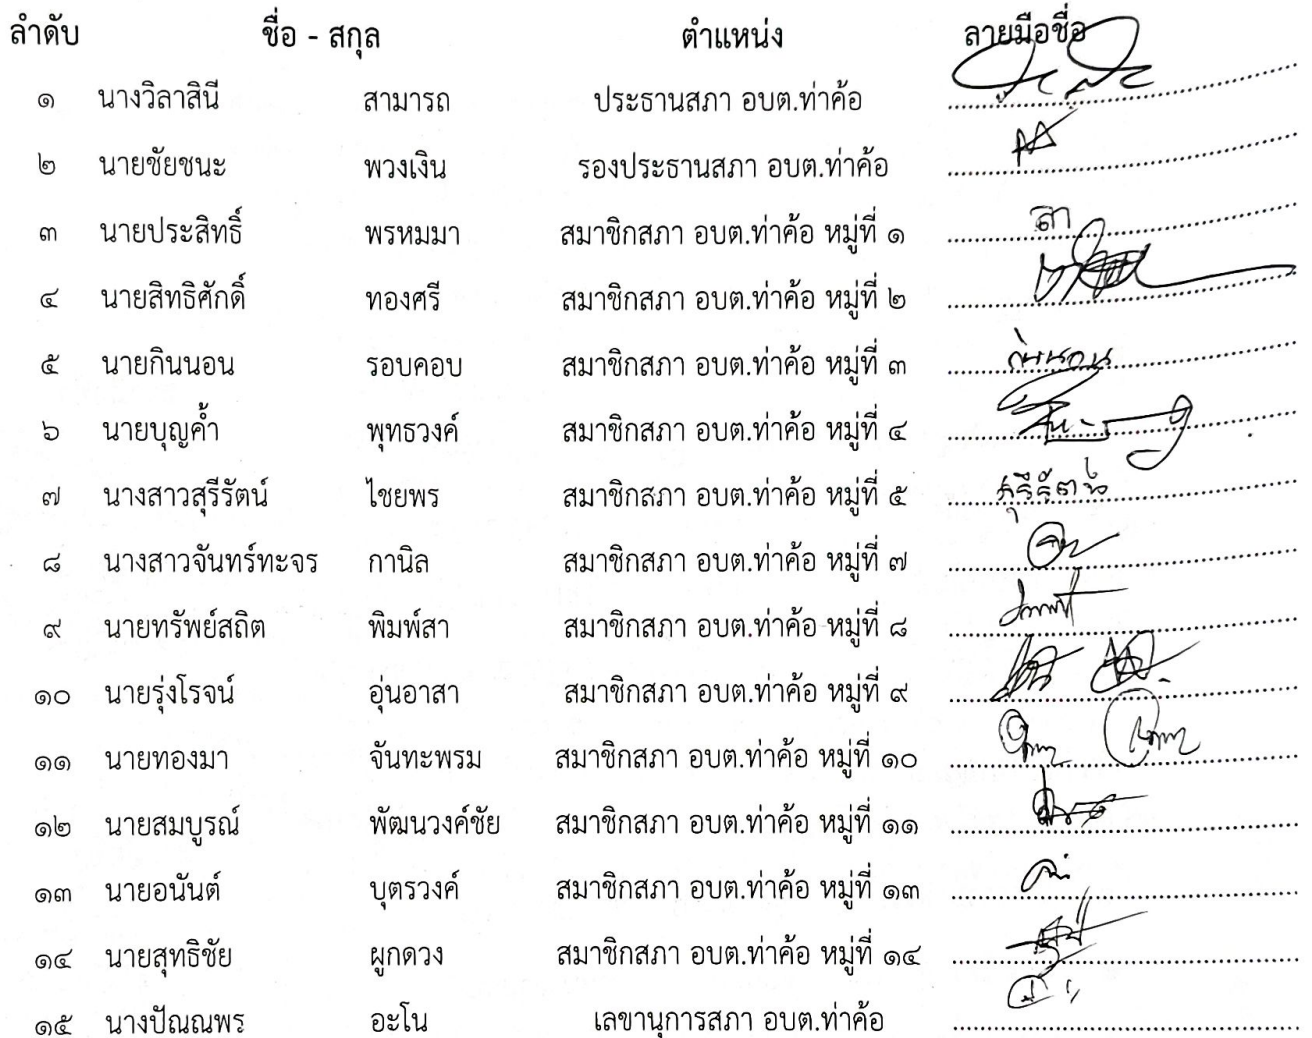 ลำดับ ชื่อ - สกุล ตำแหน่ง ลายมือชื่อ
๑ นางวิลาสินี สามารถ ประธานสภา อบต.ท่าค้อ
๒ นายชัยชนะ พวงเงิน รองประธานสภา อบต.ท่าค้อ
๓ นายประสิทธิ์ พรหมมา สมาชิกสภา อบต.ท่าค้อ หมู่ที่ ๑
๔ นายสิทธิศักดิ์ ทองศรี สมาชิกสภา อบต.ท่าค้อ หมู่ที่ ๒
๕ นายกินนอน รอบคอบ สมาชิกสภา อบต.ท่าค้อ หมู่ที่ ๓ กินนอน
๖ นายบุญค้ำ พุทธวงค์ สมาชิกสภา อบต.ท่าค้อ หมู่ที่ ๔
๗ นางสาวสุรีรัตน์ ไชยพร สมาชิกสภา อบต.ท่าค้อ หมู่ที่ ๕ สุรีรัตน์
๘ นางสาวจันทร์ทะจร กานิล สมาชิกสภา อบต.ท่าค้อ หมู่ที่ ๗
๙ นายทรัพย์สถิต พิมพ์สา สมาชิกสภา อบต.ท่าค้อ หมู่ที่ ๘
๑๐ นายรุ่งโรจน์ อุ่นอาสา สมาชิกสภา อบต.ท่าค้อ หมู่ที่ ๙
๑๑ นายทองมา จันทะพรม สมาชิกสภา อบต.ท่าค้อ หมู่ที่ ๑๐
๑๒ นายสมบูรณ์ พัฒนวงค์ชัย สมาชิกสภา อบต.ท่าค้อ หมู่ที่ ๑๑
๑๓ นายอนันต์ บุตรวงค์ สมาชิกสภา อบต.ท่าค้อ หมู่ที่ ๑๓
๑๔ นายสุทธิชัย ผูกดวง สมาชิกสภา อบต.ท่าค้อ หมู่ที่ ๑๔
๑๕ นางปัณณพร อะโน เลขานุการสภา อบต.ท่าค้อ